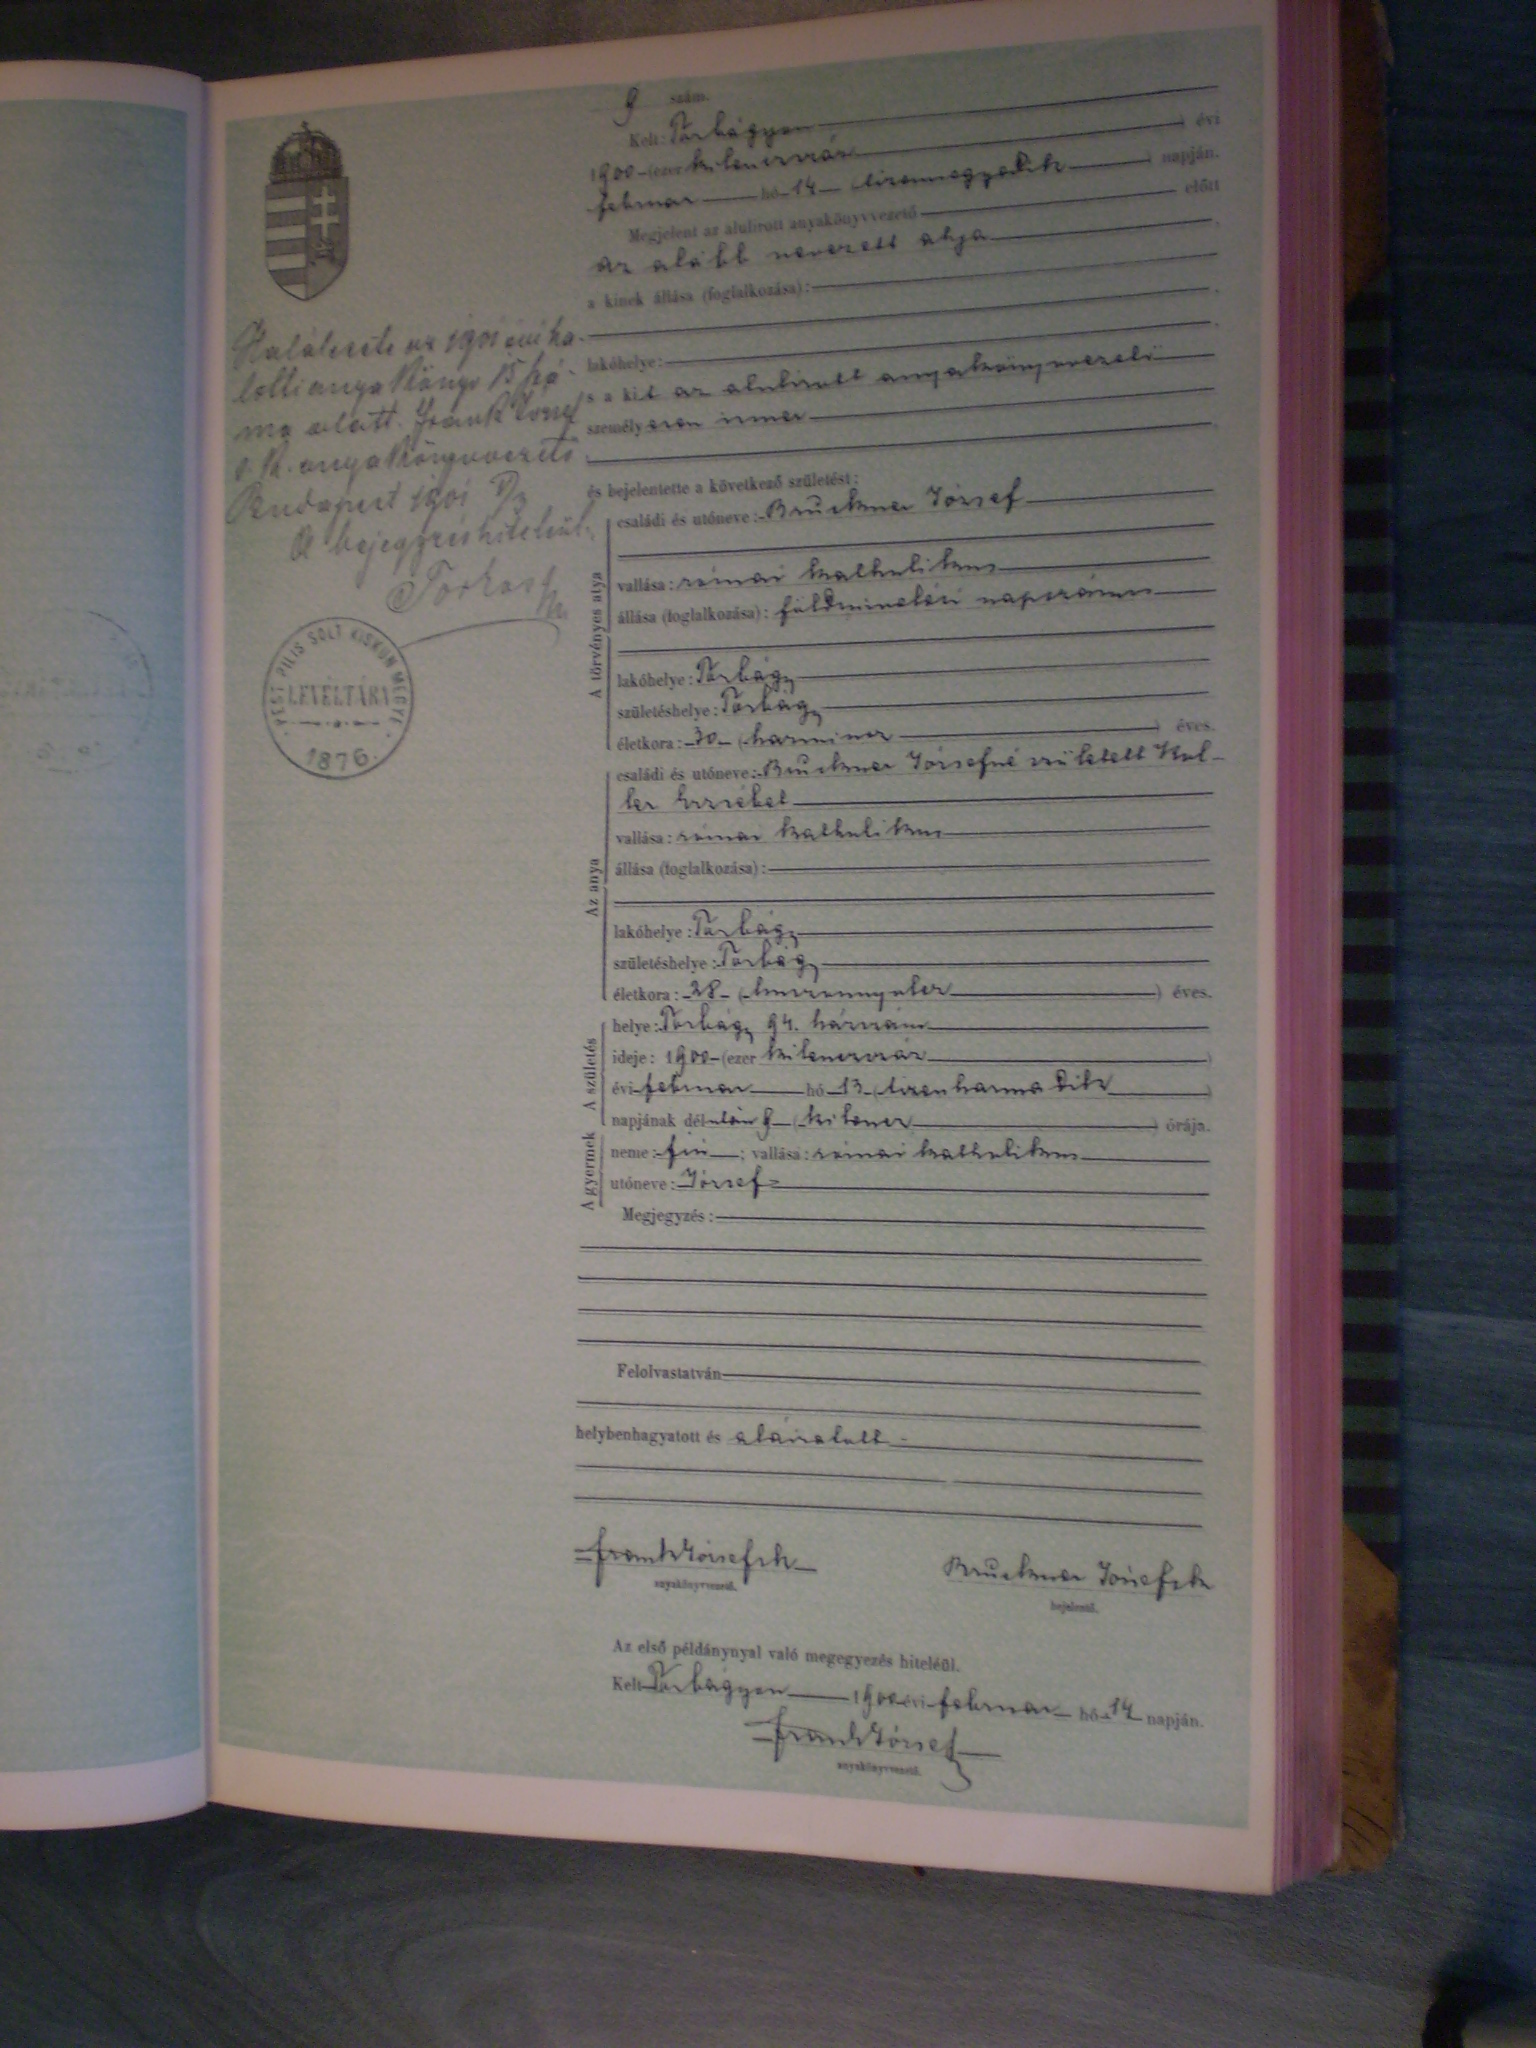 9 szám.
Kelt: Torbágyon
1900 (ezer kilenczszáz) évi
februar hó 14 (tizennegyedik) napján.
Megjelent az alulirott anyakönyvvezető előtt
az alább nevezett atya
a kinek állása (foglalkozása):
lakóhelye:
s a kit az alulirott anyakönyvvezető
személyesen ismer
és bejelentette a következő születést:
A törvényes atya
családi és utóneve: Bruckner József
vallása: római katholikus
állása (foglalkozása): földmivelési napszámos
lakóhelye: Torbágy
születéshelye: Torbágy
életkora: 30 (harmincz) éves.
Az anya
családi és utóneve: Bruckner Józsefné született Kol-
ler Erzsébet
vallása: római katholikus
állása (foglalkozása):
lakóhelye: Torbágy
születéshelye: Torbágy
életkora: 28 (huszonnyolcz) éves.
A születés
helye: Torbágy 94. házszám
ideje: 1900 (ezer kilenczszáz)
évi februar hó 13 (tizenharmadik)
napjának délután 9 (kilencz) órája.
A gyermek
neme: fiú; vallása: római katholikus
utóneve: József
Megjegyzés:
Felolvastatván
helybenhagyatott és aláiratott
Frank József sk
anyakönyvvezető.
Bruckner József sk
bejelentő.
Az első példánynyal való megegyezés hiteléül.
Kelt Torbágyon 1900 évi februar hó 14 napján.
Frank József
anyakönyvvezető.
Halálesete az 1901 évi ha-
lotti anyakönyv 15 szá-
ma alatt. Frank József
s. k. anyakönyvvezető
Budapest 1901
A bejegyzés hiteléül:
PEST PILIS SOLT KISKUN MEGYE
LEVÉLTÁRA
1876.